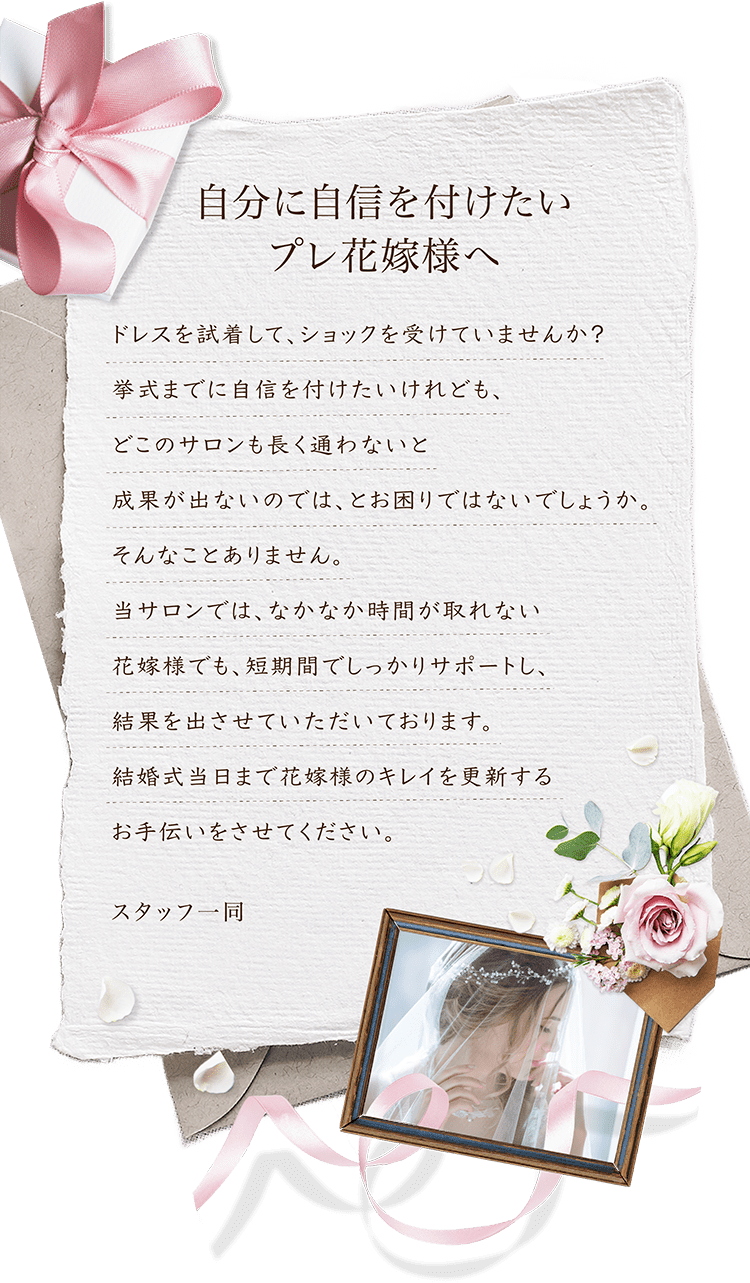 自分に自信を付けたい
プレ花嫁様へ
ドレスを試着して、ショックを受けていませんか？
挙式までに自信を付けたいけれども、
どこのサロンも長く通わないと
成果が出ないのでは、とお困りではないでしょうか。
そんなことありません。
当サロンでは、なかなか時間が取れない
花嫁様でも、短期間でしっかりサポートし、
結果を出させていただいております。
結婚式当日まで花嫁様のキレイを更新する
お手伝いをさせてください。
スタッフ一同